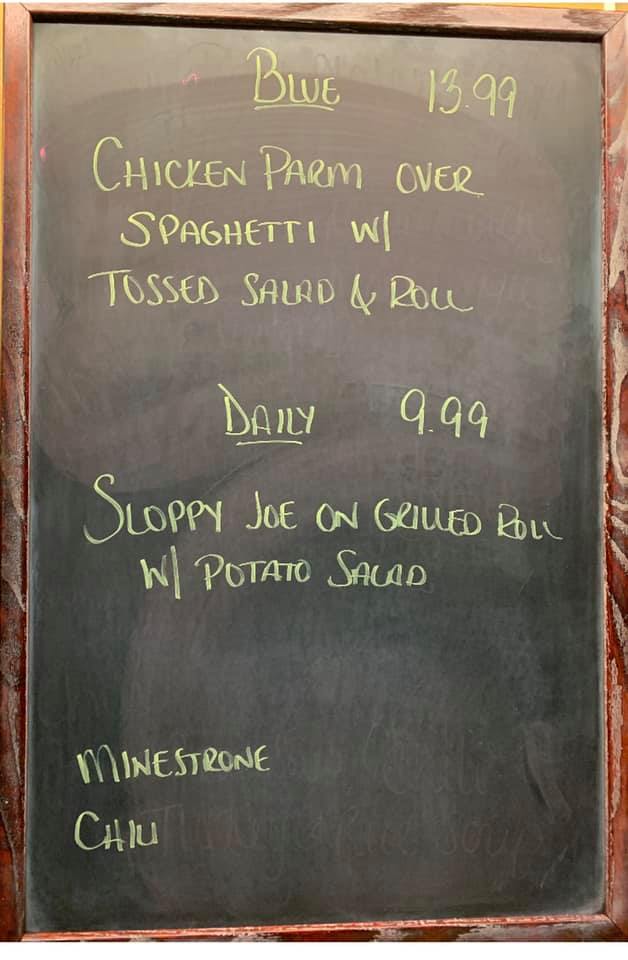 BLUE 13.99
CHICKEN PARM OVER
SPAGHETTI W/
TOSSED SALAD & ROLL
DAILY 9.99
SLOPPY JOE ON GRILLED ROLL
W/ POTATO SALAD
MINESTRONE
CHILI